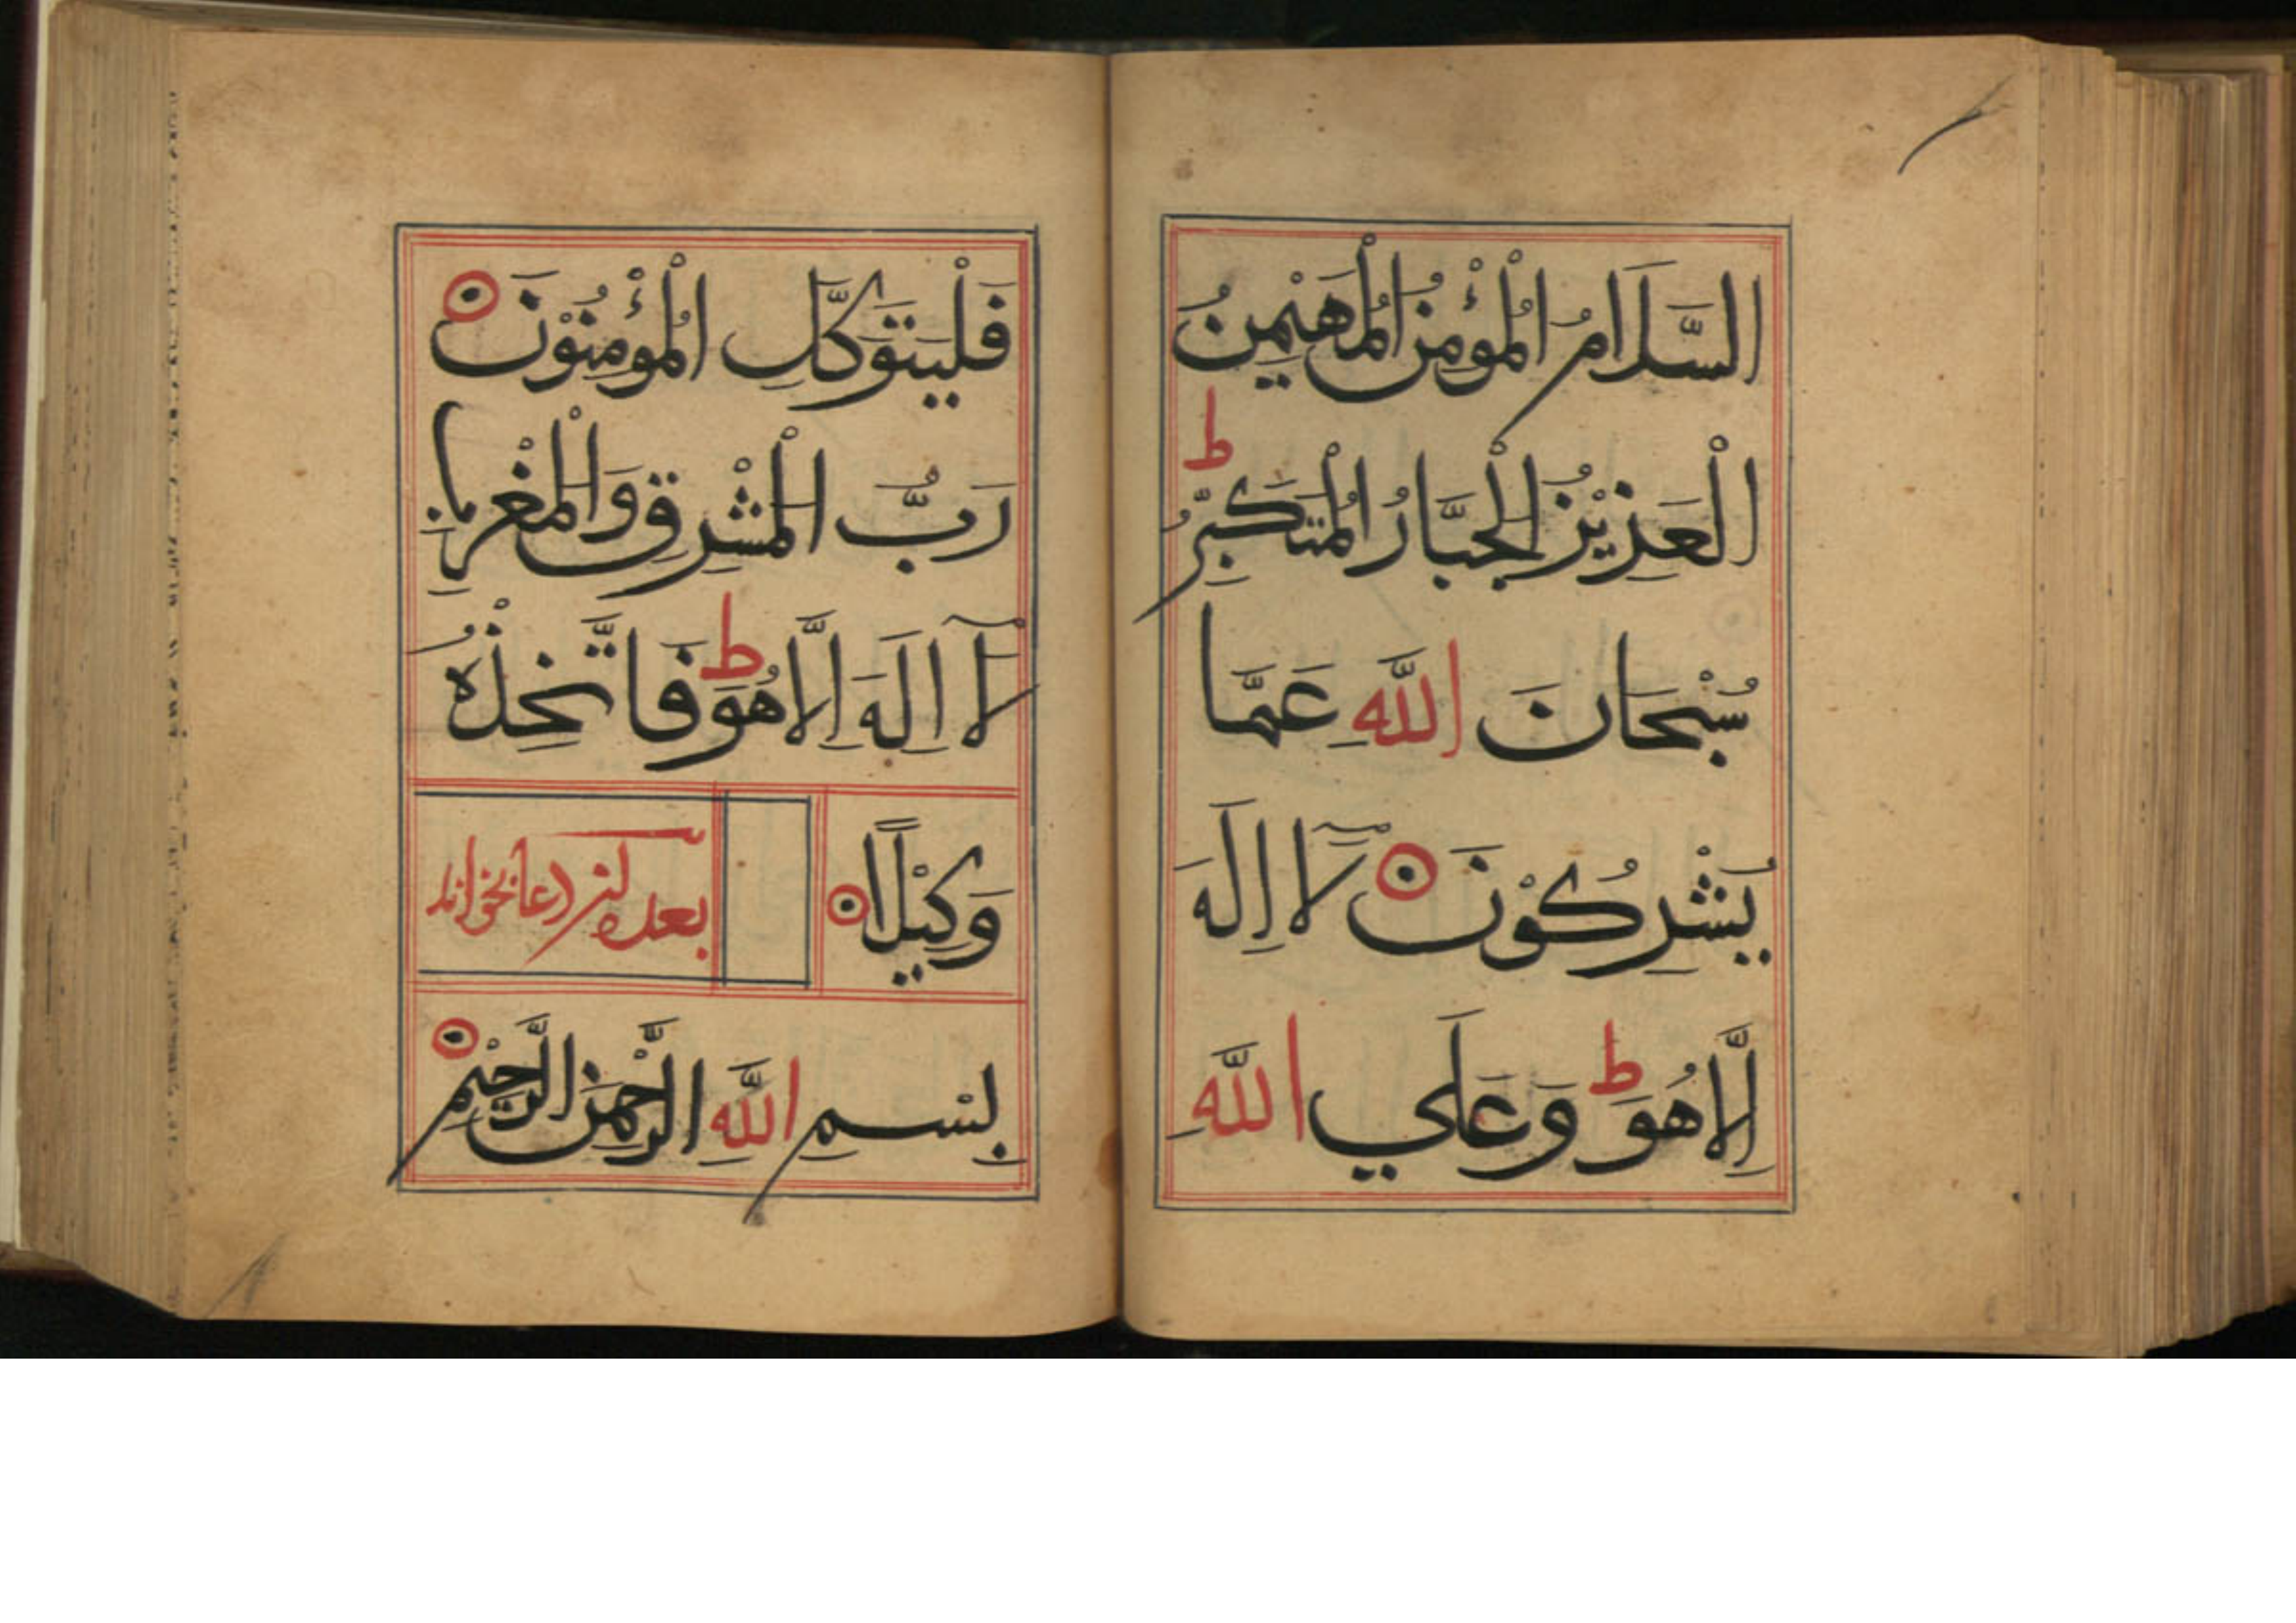 السَّلَامُ الْمُؤْمِنُ الْمُهَيْمِنُ
الْعَزِيْزُ الْجَبَّارُ الْمُتَكَبِّرُ ط
سُبْحَانَ اللّٰهِ عَمَّا
يُشْرِكُوْنَ لَآ اِلٰهَ
اِلَّا هُوَ ط وَعَلَي اللّٰهِ
فَلْيَتَوَكَّلِ الْمُؤْمِنُوْنَ
رَبُّ الْمَشْرِقِ وَالْمَغْرِبِ
لَآ اِلٰهَ اِلَّا هُوَ ط فَاتَّخِذْهُ
وَكِيْلًا
بعد ازين دعا بخواند
بِسْمِ اللّٰهِ الرَّحْمٰنِ الرَّحِيْمِ